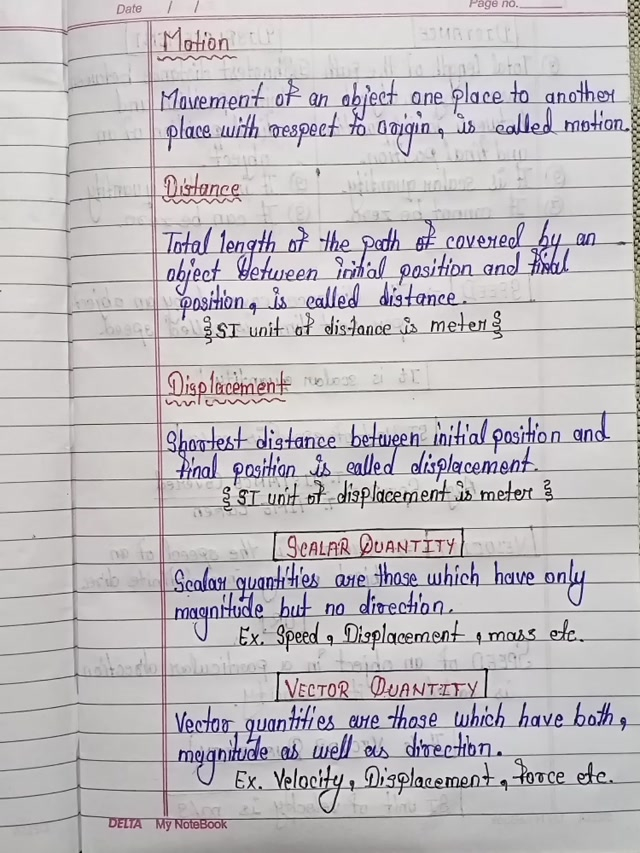 Date / /
Page no.
Motion
Movement of an object one place to another
place with respect to origin, is called motion.
Distance
Total length of the path of covered by an
object between initial position and final
position, is called distance.
{SI unit of distance is meter}
Displacement
Shortest distance between initial position and
final position is called displacement.
{SI unit of displacement is meter}
SCALAR QUANTITY
Scalar quantities are those which have only
magnitude but no direction.
Ex. Speed, Displacement, mass etc.
VECTOR QUANTITY
Vector quantities are those which have both,
megnitude as well as direction.
Ex. Velocity, Displacement, force etc.
DELTA My NoteBook